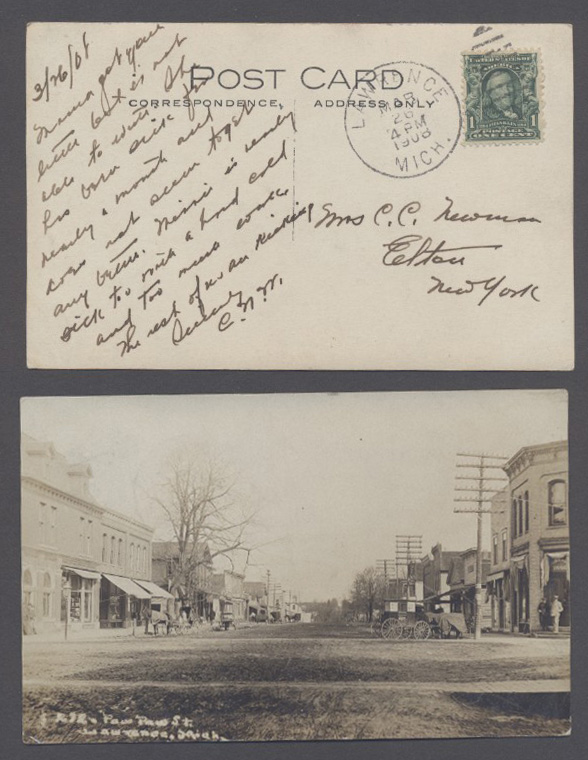 3/26/08
POST CARD
CORRESPONDENCE. ADDRESS ONLY
Mamma got your
letter but is not
able to write. She
has been sick for
nearly a month and
does not seem to get
any better. Minnie is nearly
sick too with a hard cold
and too much work.
The rest of us are kicking
C. N. W.
LAWRENCE
MAR
26
4 PM
1908
MICH.
1
POSTAGE
ONE CENT
Mrs C. C. Newman
Elton
New York
Paw Paw St.
Lawrence, Mich.